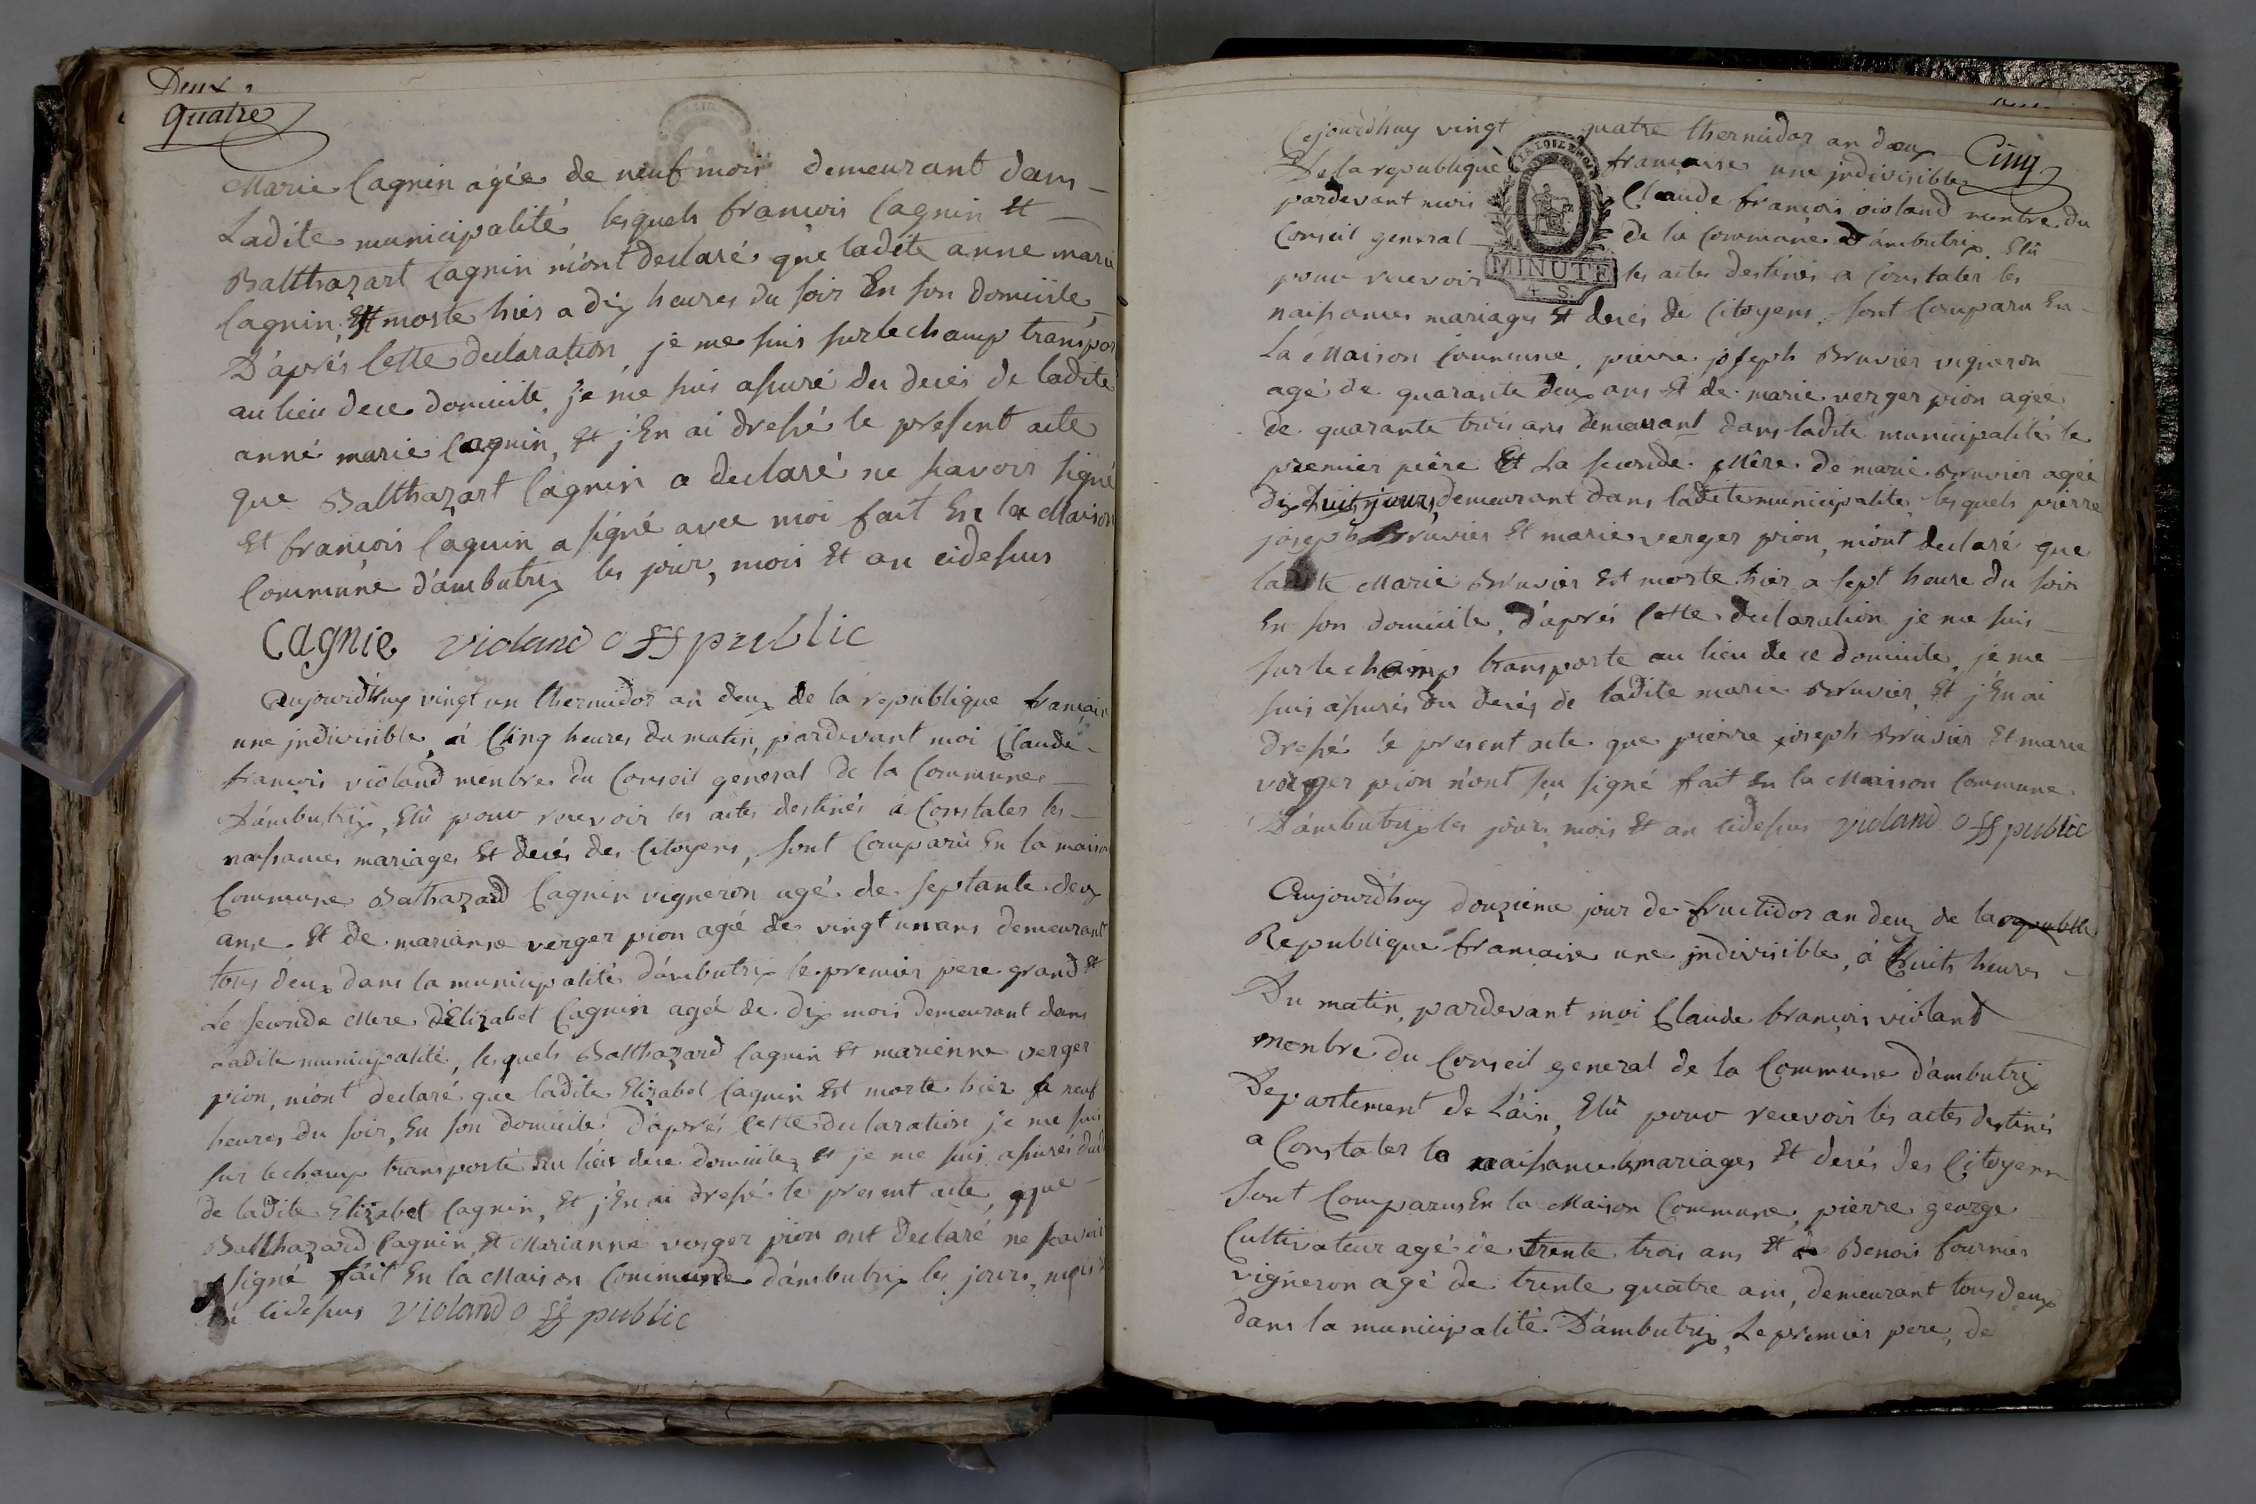 Deux
quatre
Marie Cagnin agée de neuf mois demeurant dans
Ladite municipalité lesquels francois Cagnin Et
Balthazart Cagnin m'ont declaré que ladite anne marie
Cagnin Est morte hier a dix heures du soir En son domicile
D'aprés Cette declaration je me suis sur le champ transpor
au lieu de ce domicile, je me suis assuré du decés de ladite
anne marie Cagnin, Et j'En ai dressé le present acte
que Balthazart Cagnin a declaré ne scavoir signé
Et francois Cagnin a signé avec moi fait En la Maison
Commune d'ambutrix les jour, mois Et an cidessus
Cagnie violand off public
Aujourd'huy vingt un thermidor an deux de la republique francaise
une jndivisible, á Cinq heures du matin, pardevant moi Claude
francois violand menbre du Conseil general de la Commune
D'ambutrix, Elû pour recevoir les actes destinés á Constater les
naissances mariages Et decés des Citoyens, sont Comparù En la maison
Commune Bathazard Cagnin vigneron agé de septante deux
ans Et de marianne verger pion agé de vingt un ans demeurant
tous deux dans la municipalité d'ambutrix le premier pere grand Et
Le seconde Mere d'Elizabet Cagnin agé de dix mois demeurant dans
Ladite municipalité, lesquels Balthazard Cagnin Et marienne verger
pion, m'ont declaré que ladite Elizabet Cagnin Est morte hier a neuf
heures du soir, En son domicile d'aprés Cette declaration je me suis
sur le champ transporté au lieu de ce domicile, Et je me suis assurés du d
de ladite Elizabet Cagnin, Et j'En ai dressé le present acte, que
Balthazard Cagnin Et Marianne verger pion ont declaré ne scavoir
signé fait En la Maison Commune d'ambutrix les jour, mois
an cidessus violand off public
Cinq
Cejourd'huy vingt quatre thermidor an deux
De la republique francaise une jndivisible
pardevant moi Claude francois violand menbre du
Conseil general de la Commune d'ambutrix Elû
pour recevoir les actes destinés a Constater les
LA LOI LE ROI
MINUTE
4 S.
naissances mariages Et decés de Citoyens, sont Comparu En
La Maison Commune, pierre joseph Bruvier vigneron
agé de quarante deux ans Et de marie verger pion agée
de quarante trois ans demeurant dans ladite municipalité le
premier pére Et La seconde Mére de marie Bruvier agée
dix huit jours, demeurant dans ladite municipalité, lesquels pierre
joseph Bruvier Et marie verger pion, m'ont declaré que
ladite Marie Bruvier Est morte hier a sept heure du soir
En son domicile, d'aprés Cette declaration je me suis
sur le champ transporte au lieu de ce domicile, je me
suis assurés du decés de ladite marie Bruvier, Et j'En ai
dressé le present acte que pierre joseph Bruvier Et marie
verger pion n'ont scu signé fait En la Maison Commune
D'ambutrix les jours, mois Et an cidessus violand off public
Aujourd'huy douzieme jour de fructidor an deux de la republi
Republique francaise une jndivisible, á huits heures
Du matin, pardevant moi Claude francois violand
menbre du Conseil general de la Commune d'ambutrix
Departement de L'ain, Elû pour recevoir les actes destinés
a Constater la naissance les mariages Et decés des Citoyens
sont Comparus En la Maison Commune, pierre george
Cultivateur agé de trente trois ans Et de Benois fournier
vigneron agé de trente quatre ans, demeurant tous deux
dans la municipalité D'ambutrix, Le premier pere, de